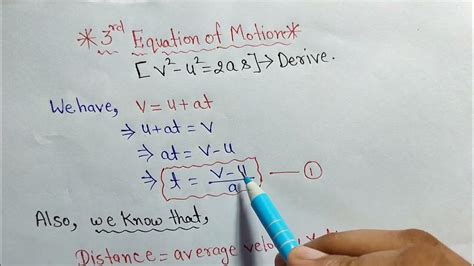 *3rd Equation of Motion*
[v²-u²=2as]→Derive.
We have, v = u + at
⇒ u + at = v
⇒ at = v - u
⇒ t = v-u/a — ①
Also, we know that,
Distance = average